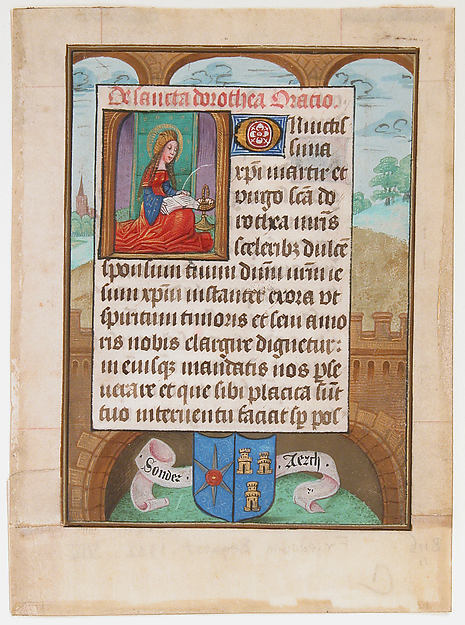 De sancta dorothea Oratio
O Inuictis
sima
xp̄i martir et
uirgo scā do
rothea n̄ris
sceleribꝫ dulcē
sponsum tuum dūm n̄rm ie
sum xp̄m instanter exora vt
spiritum timoris et sein amo
ris nobis elargire dignetur:
in eiusqꝫ mandatis nos ꝑse
uerare et que sibi placita sūt
tuo interuentu faciat sp̄ pos
Sonder
Aerch